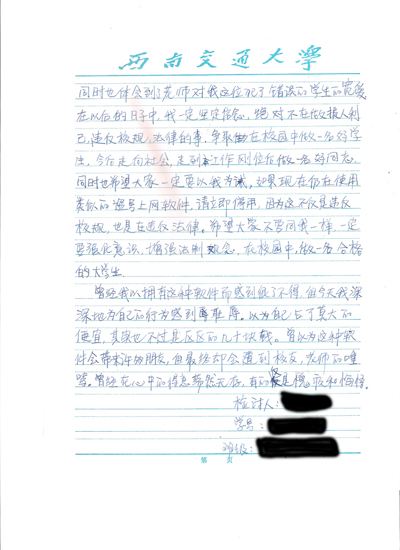 西南交通大学
同时也体会到了老师对我这位犯了错误的学生的宽宏
在以后的日子中,我一定坚定信念,绝对不在做损人利
己,违反校规、法律的事,争取在校园中做一名好学
生,今后走向社会,走到工作岗位后做一名好同志,
同时也希望大家一定要以我为诫,如果现在仍在使用
类似的盗号上网软件,请立即停用,因为这不仅是违反
校规,也是在违反法律。希望大家不要同我一样,一定
要强化意识,增强法制观念,在校园中,做一名合格
的大学生.
曾经我以拥有这种软件而感到很了不得,但今天我深
深地为自己的行为感到耻辱。以为自己占了莫大的
便宜,其实也不过是区区的几十块钱。曾以为这种软
件会带来许多朋友,但最终却会遭到校友,老师的唾
骂。曾经在心中的得意荡然无存,有的仅是愧疚和悔恨.
检讨人:
学号:
班级:
第 页